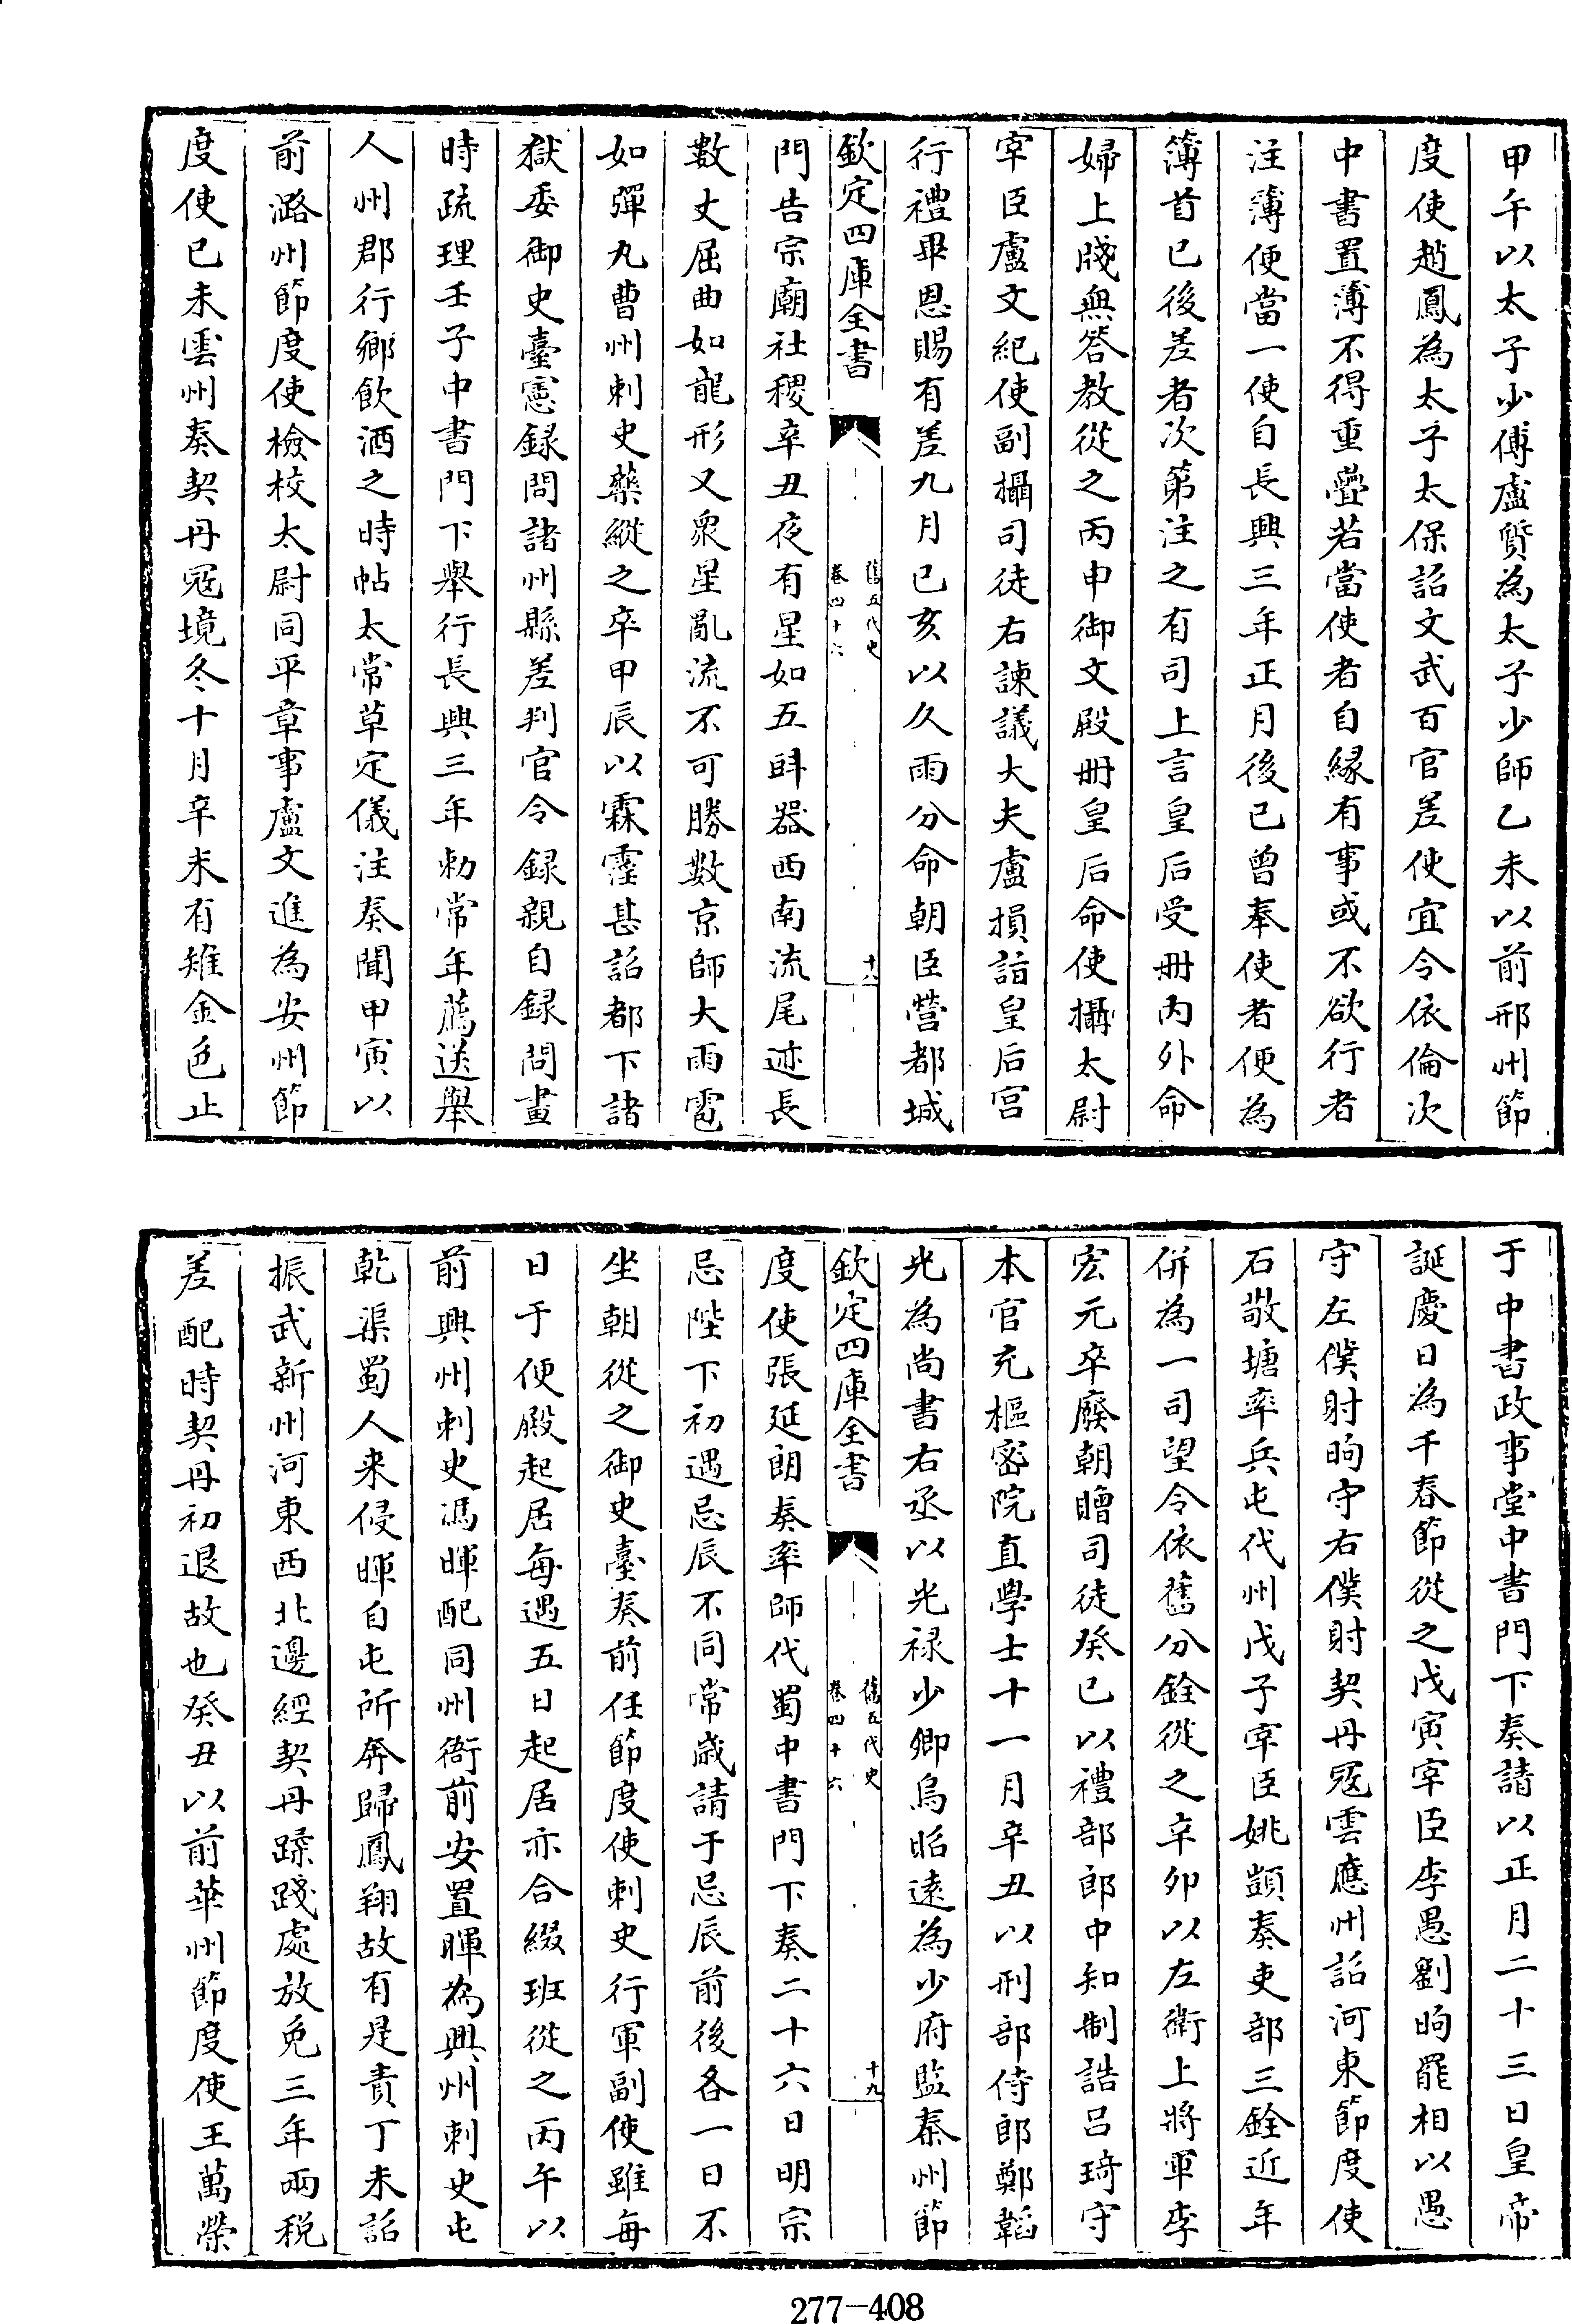 甲午以太子少傅盧質為太子少師乙未以前邢州節
度使趙鳳為太子太保詔文武百官差使宜令依倫次
中書置簿不得重疊若當使者自緣有事或不欲行者
注簿便當一使自長興三年正月後已曾奉使者便為
簿首已後差者次第注之有司上言皇后受冊內外命
婦上牋無答教從之丙申御文殿冊皇后命使攝太尉
宰臣盧文紀使副攝司徒右諫議大夫盧損詣皇后宫
行禮畢恩賜有差九月己亥以久雨分命朝臣禜都城
欽定四庫全書
舊五代史
卷四十六
十八
門告宗廟社稷辛丑夜有星如五㪷器西南流尾迹長
數丈屈曲如龍形又衆星亂流不可勝數京師大雨雹
如彈丸曹州刺史藥縱之卒甲辰以霖霪甚詔都下諸
獄委御史臺憲録問諸州縣差判官令録親自録問畫
時疏理壬子中書門下舉行長興三年勅常年薦送舉
人州郡行鄉飲酒之時帖太常草定儀注奏聞甲寅以
前潞州節度使檢校太尉同平章事盧文進為安州節
度使己未雲州奏契丹冦境冬十月辛未有雉金色止
于中書政事堂中書門下奏請以正月二十三日皇帝
誕慶日為千春節從之戊寅宰臣李愚劉昫罷相以愚
守左僕射昫守右僕射契丹冦雲應州詔河東節度使
石敬塘率兵屯代州戊子宰臣姚顗奏吏部三銓近年
併為一司望令依舊分銓從之辛卯以左衛上將軍李
宏元卒廢朝贈司徒癸已以禮部郎中知制誥吕琦守
本官充樞密院直學士十一月辛丑以刑部侍郎鄭韜
光為尚書右丞以光禄少卿烏昭遠為少府監秦州節
欽定四庫全書
舊五代史
卷四十六
十九
度使張延朗奏率師代蜀中書門下奏二十六日明宗
忌陛下初遇忌辰不同常歲請于忌辰前後各一日不
坐朝從之御史臺奏前任節度使刺史行軍副使雖每
日于便殿起居每遇五日起居亦合綴班從之丙午以
前興州刺史馮暉配同州衙前安置暉為興州刺史屯
乾渠蜀人来侵暉自屯所奔歸鳳翔故有是責丁未詔
振武新州河東西北邊經契丹蹂踐處放免三年兩税
差配時契丹初退故也癸丑以前華州節度使王萬榮
277-408